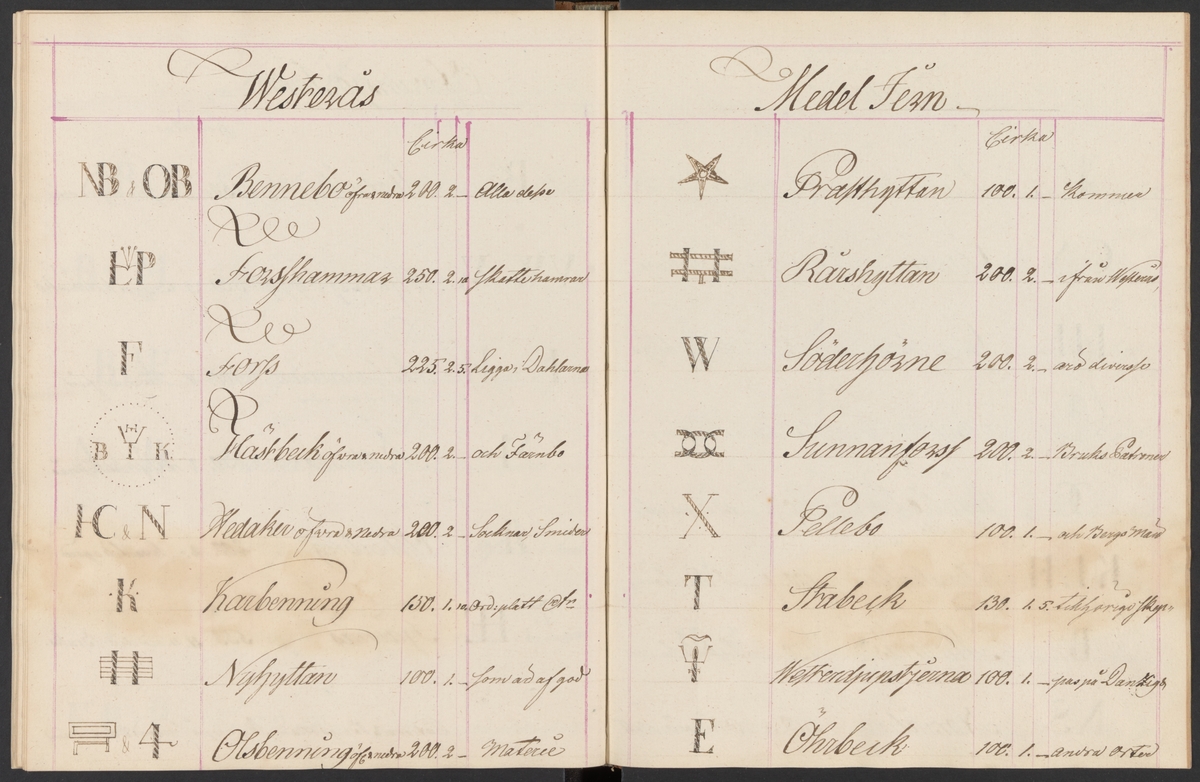 Westerås
Cirka
NB & OB Bennebo öfra & nedra 200. 2. — Alla desse
EP Forsshammar 250. 2. 10 skattehamrar
F Forss 225. 2. 5. Ligga i Dahlarna
B Y K Hästbeck öfvra & nedra 200. 2. — och Färnbo
HC & N Hedaker öfvra & Nedra 200. 2 — Socknar, Smider
K Karbenning 150. 1. 10. Ordi: platt
H Nyhyttan 100. 1. — som är af god
& 4 Olsbenning öf: & nedra 200. 2 — Materie
Medel Jern
Cirka
Prästhyttan 100. 1. — kommer
Rårshyttan 200. 2. — ifrån Westerås,
W Söderhörne 200. 2. — äro diverse
Sunnanforss 200. 2. — Bruks Patroner
X Pellebo 100. 1. — och Bergsmän
T Stabeck 130. 1. 5.
Westerdjupstjerna 100. 1. — på Dantzig &
E Öhrbeck 100. 1. — andra orter